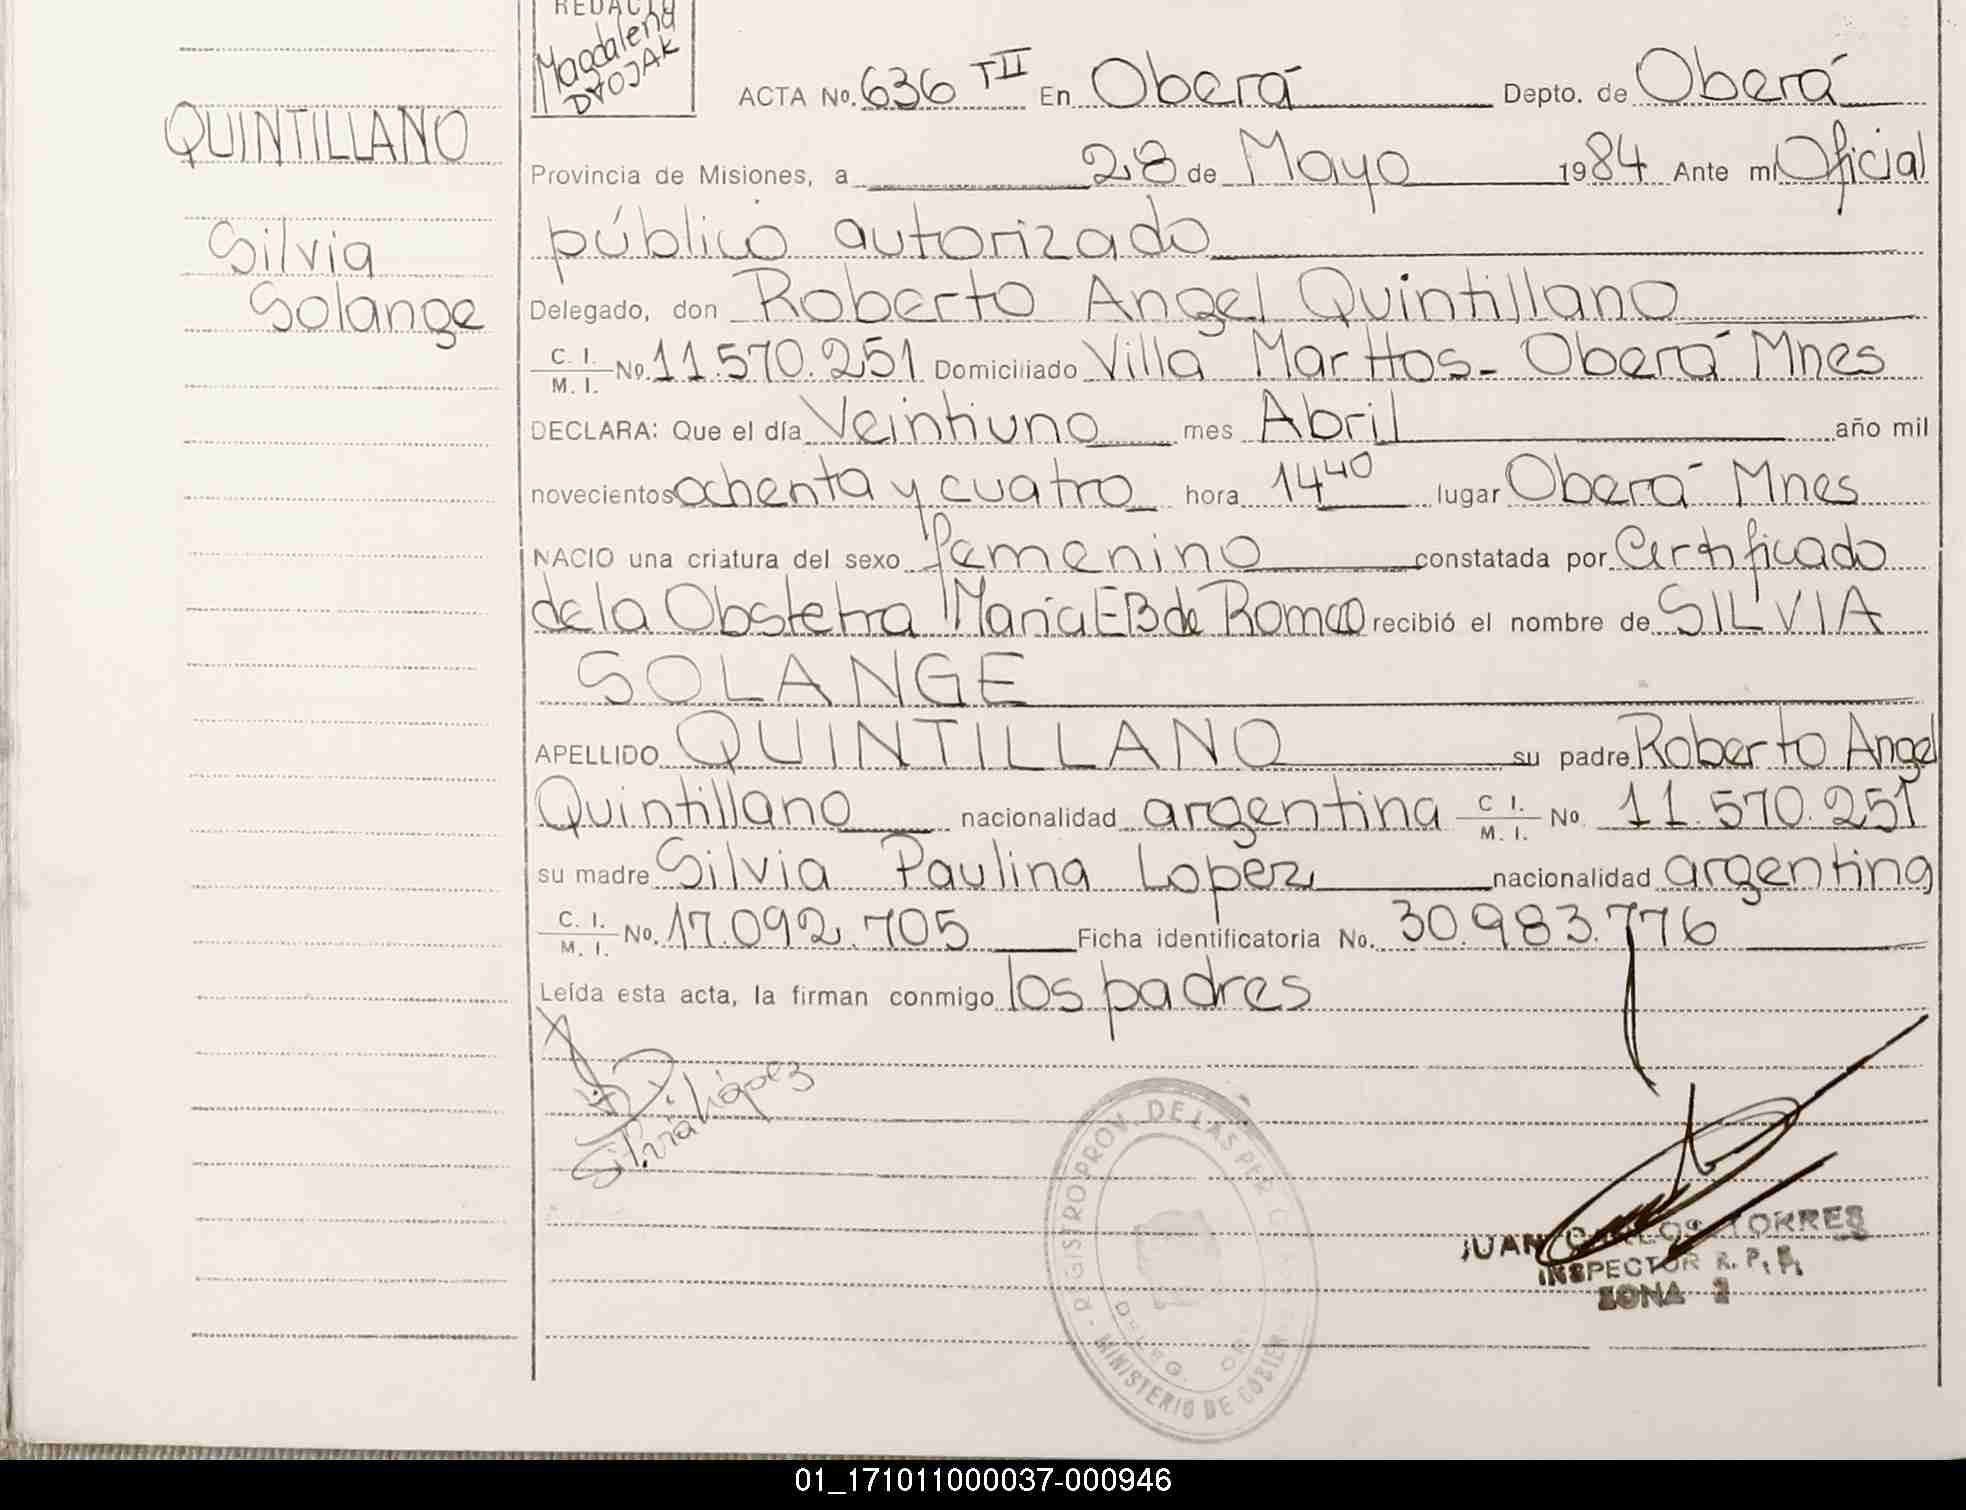 REDACTO
Magdalena
DVOJAK
QUINTILLANO
Silvia
Solange
ACTA No. 636 TII En Oberá Depto. de Oberá
Provincia de Misiones, a 28 de Mayo 1984 Ante mí Oficial
público autorizado
Delegado, don Roberto Angel Quintillano
C. I. / M. I. No. 11.570.251 Domiciliado Villa Marttos - Oberá Mnes
DECLARA: Que el día Veintiuno mes Abril año mil
novecientos ochenta y cuatro hora 14 40 lugar Oberá Mnes
NACIO una criatura del sexo femenino constatada por Certificado
de la Obstetra María E B de Romeo recibió el nombre de SILVIA
SOLANGE
APELLIDO QUINTILLANO su padre Roberto Angel
Quintillano nacionalidad argentina C I. / M. I. No. 11.570.251
su madre Silvia Paulina Lopez nacionalidad argentina
C. I. / M. I. No. 17.092.705 Ficha identificatoria No. 30.983.776
Leída esta acta, la firman conmigo los padres
Silvia López
REGISTRO PROV. DE LAS PER
MINISTERIO DE GOBIER
JUAN CARLOS TORRES
INSPECTOR R. P. P.
ZONA 2
01_171011000037-000946